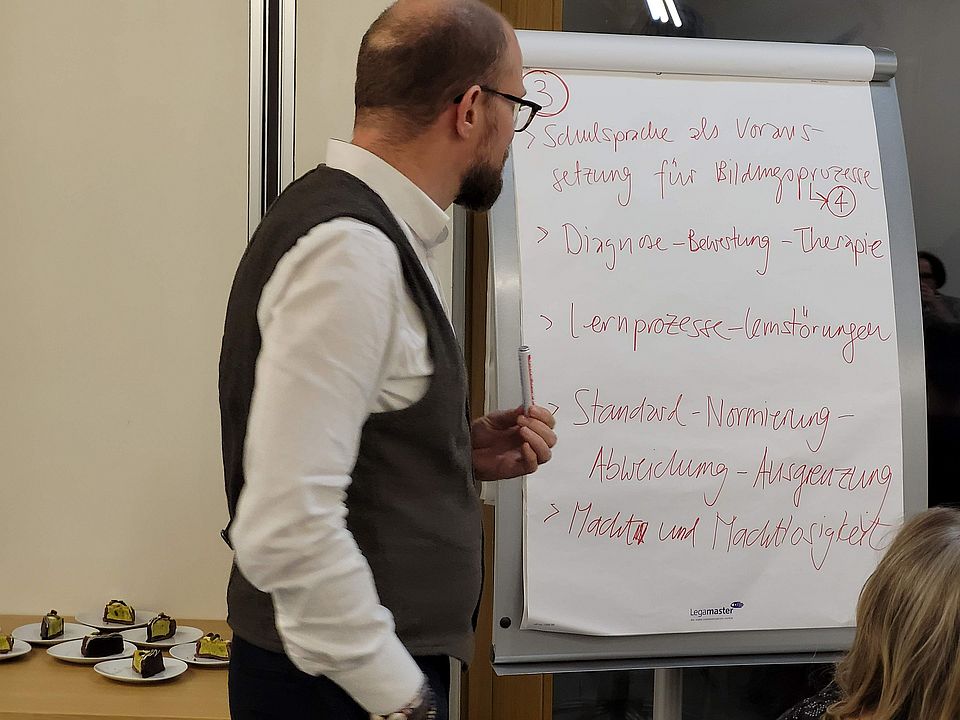 ③
> Schulsprache als Voraus-
setzung für Bildungsprozesse
↳ ④
> Diagnose - Bewertung - Therapie
> Lernprozesse - Lernstörungen
> Standard - Normierung -
Abweichung - Ausgrenzung
> Macht und Machtlosigkeit
Legamaster